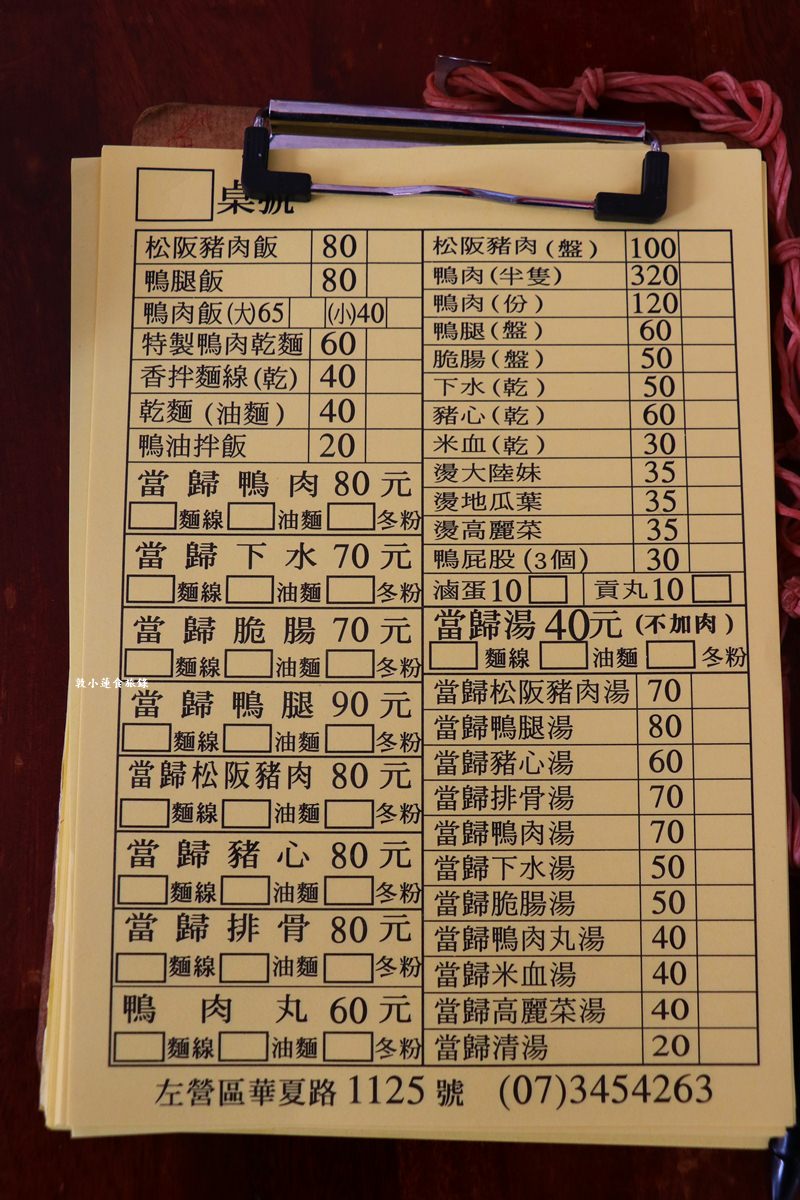 桌號
松阪豬肉飯 80
鴨腿飯 80
鴨肉飯(大)65 (小)40
特製鴨肉乾麵 60
香拌麵線(乾) 40
乾麵(油麵) 40
鴨油拌飯 20
當歸鴨肉 80元
麵線 油麵 冬粉
當歸下水 70元
麵線 油麵 冬粉
當歸脆腸 70元
麵線 油麵 冬粉
當歸鴨腿 90元
麵線 油麵 冬粉
當歸松阪豬肉 80元
麵線 油麵 冬粉
當歸豬心 80元
麵線 油麵 冬粉
當歸排骨 80元
麵線 油麵 冬粉
鴨肉丸 60元
麵線 油麵 冬粉
松阪豬肉(盤) 100
鴨肉(半隻) 320
鴨肉(份) 120
鴨腿(盤) 60
脆腸(盤) 50
下水(乾) 50
豬心(乾) 60
米血(乾) 30
燙大陸妹 35
燙地瓜葉 35
燙高麗菜 35
鴨屁股(3個) 30
滷蛋10 貢丸10
當歸湯 40元(不加肉)
麵線 油麵 冬粉
當歸松阪豬肉湯 70
當歸鴨腿湯 80
當歸豬心湯 60
當歸排骨湯 70
當歸鴨肉湯 70
當歸下水湯 50
當歸脆腸湯 50
當歸鴨肉丸湯 40
當歸米血湯 40
當歸高麗菜湯 40
當歸清湯 20
左營區華夏路 1125 號 (07)3454263
敦小蓮食旅錄